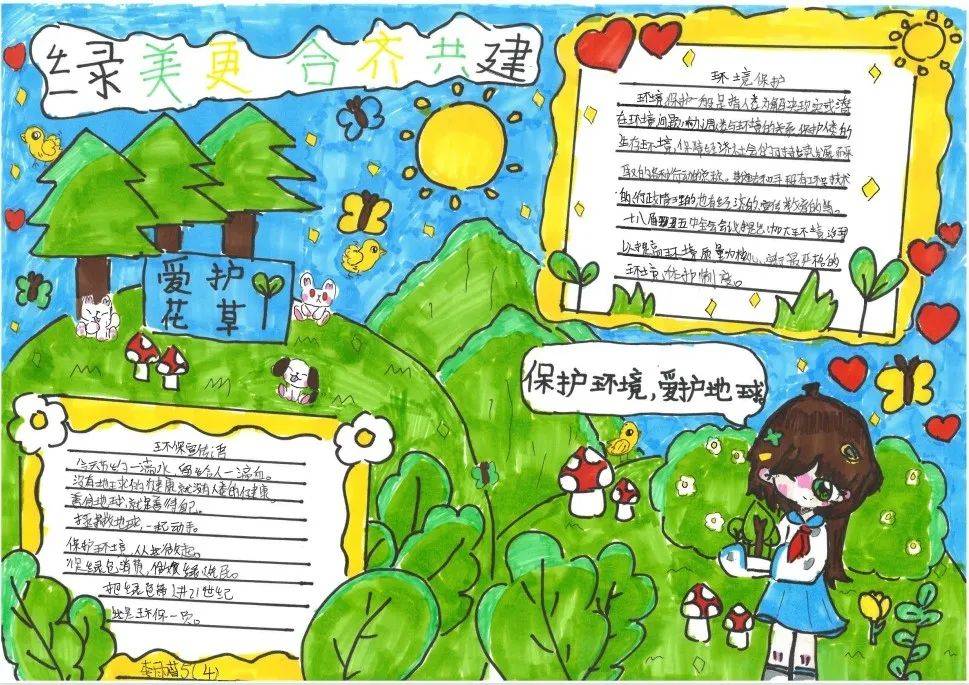 绿美更合齐共建
爱护
花草
环境保护
环境保护一般是指人类为解决现实或潜
在环境问题,协调人类与环境的关系,保护人类的
生存环境,保障经济社会的可持续发展而采
取的各种行动的总称。
十八届五中全会会议提出加大环境治理
以提高环境质量为核心,实行最严格的
环境保护制度。
保护环境,爱护地球
环保宣传语
今天节约一滴水,留给后人一滴血。
没有地球的健康就没有人类的健康
善待地球,就是善待自己。
拯救地球,一起动手。
保护环境,从我做起。
绿色消费,做
把绿色带进21世纪
环保一员。
5(4)